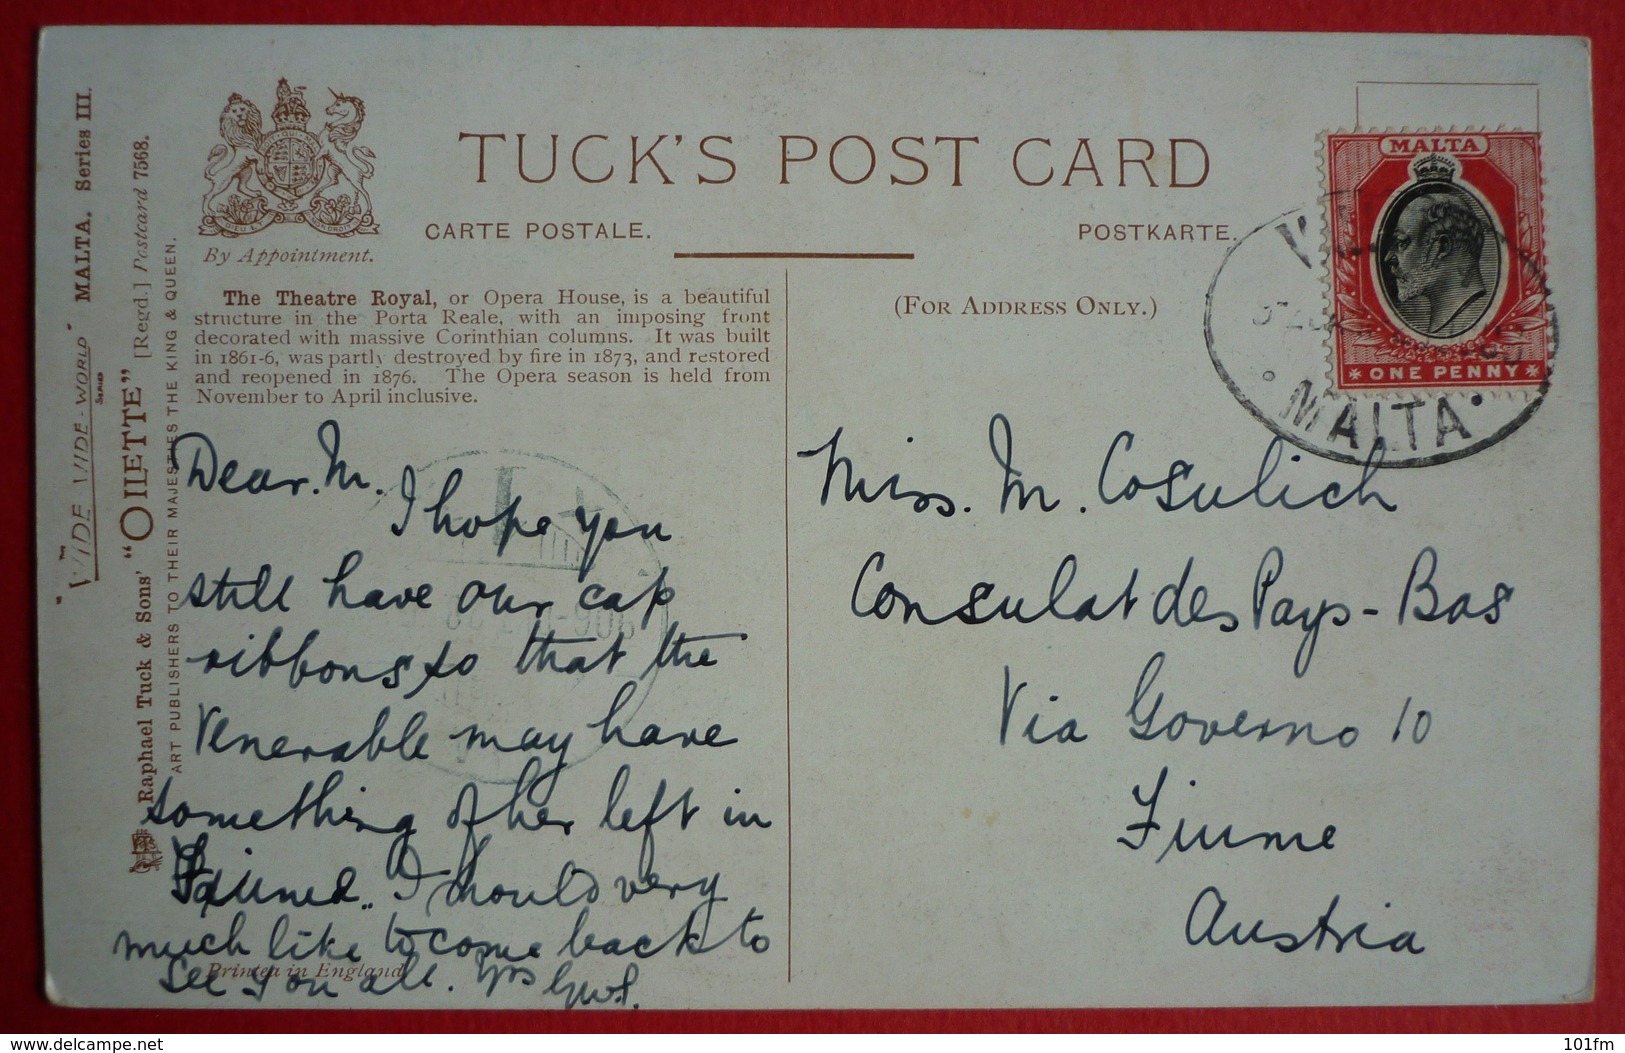 "THE WIDE-WIDE-WORLD" SERIES MALTA. Series III.
Raphael Tuck & Sons' "OILETTE" [Regd.] Postcard 7568.
ART PUBLISHERS TO THEIR MAJESTIES THE KING & QUEEN.
By Appointment.
TUCK'S POST CARD
CARTE POSTALE.
POSTKARTE.
The Theatre Royal, or Opera House, is a beautiful
structure in the Porta Reale, with an imposing front
decorated with massive Corinthian columns. It was built
in 1861-6, was partly destroyed by fire in 1873, and restored
and reopened in 1876. The Opera season is held from
November to April inclusive.
Dear. M.
I hope you
still have our cap
ribbons so that the
Venerable may have
something of her left in
Fiume. I should very
much like to come back to
see you all. Yrs
Printed in England
(FOR ADDRESS ONLY.)
MALTA
ONE PENNY
MALTA
Miss. M. Cosulich
Consulat des Pays-Bas
Via Governo 10
Fiume
Austria
Delcampe.net
101fm